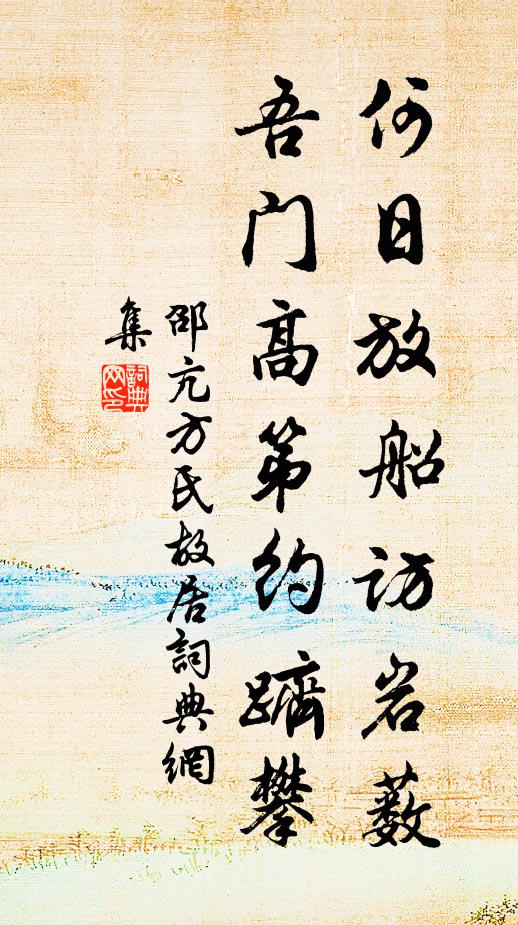 何日放船访岩薮
吾门高第约跻攀
邵亢方氏故居詞典網
集
詞典網印